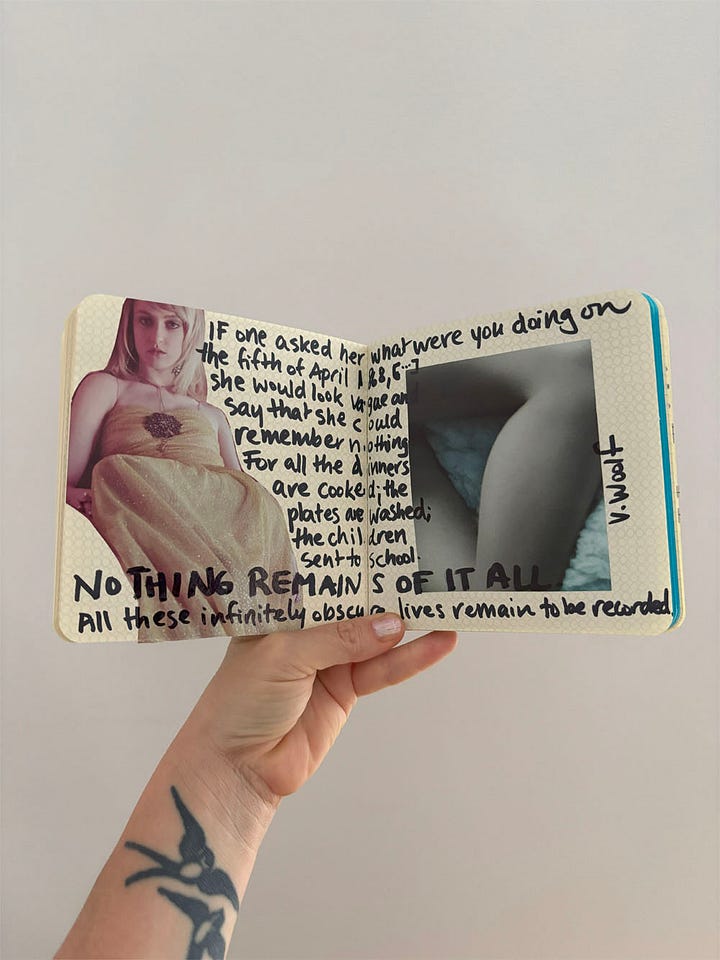 IF one asked her what were you doing on
the fifth of April 1868, [...]
she would look vague and
say that she could
remember nothing
For all the dinners
are cooked; the
plates are washed;
the children
sent to school.
NOTHING REMAINS OF IT ALL.
All these infinitely obscure lives remain to be recorded.
V. Woolf